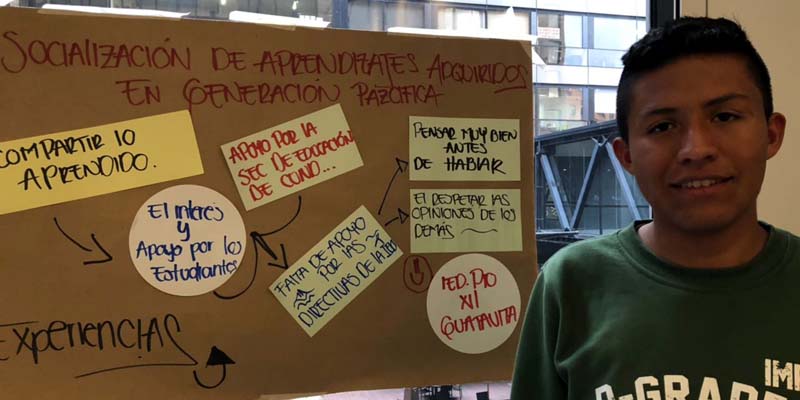 SOCIALIZACIÓN DE APRENDIZAJES ADQUIRIDOS
EN GENERACIÓN PAZCÍFICA
COMPARTIR LO
APRENDIDO.
El Interés
y
Apoyo por los
Estudiantes
APOYO POR LA
SEC DE EDUCACIÓN
DE CUND...
FALTA DE APOYO
POR LAS
DIRECTIVAS DE LA
PENSAR MUY BIEN
ANTES
DE HABLAR
El RESPETAR LAS
OPINIONES DE LOS
DEMÁS
IED. PIO
XII
GUATAVITA
Experiencias
IM
GRADE